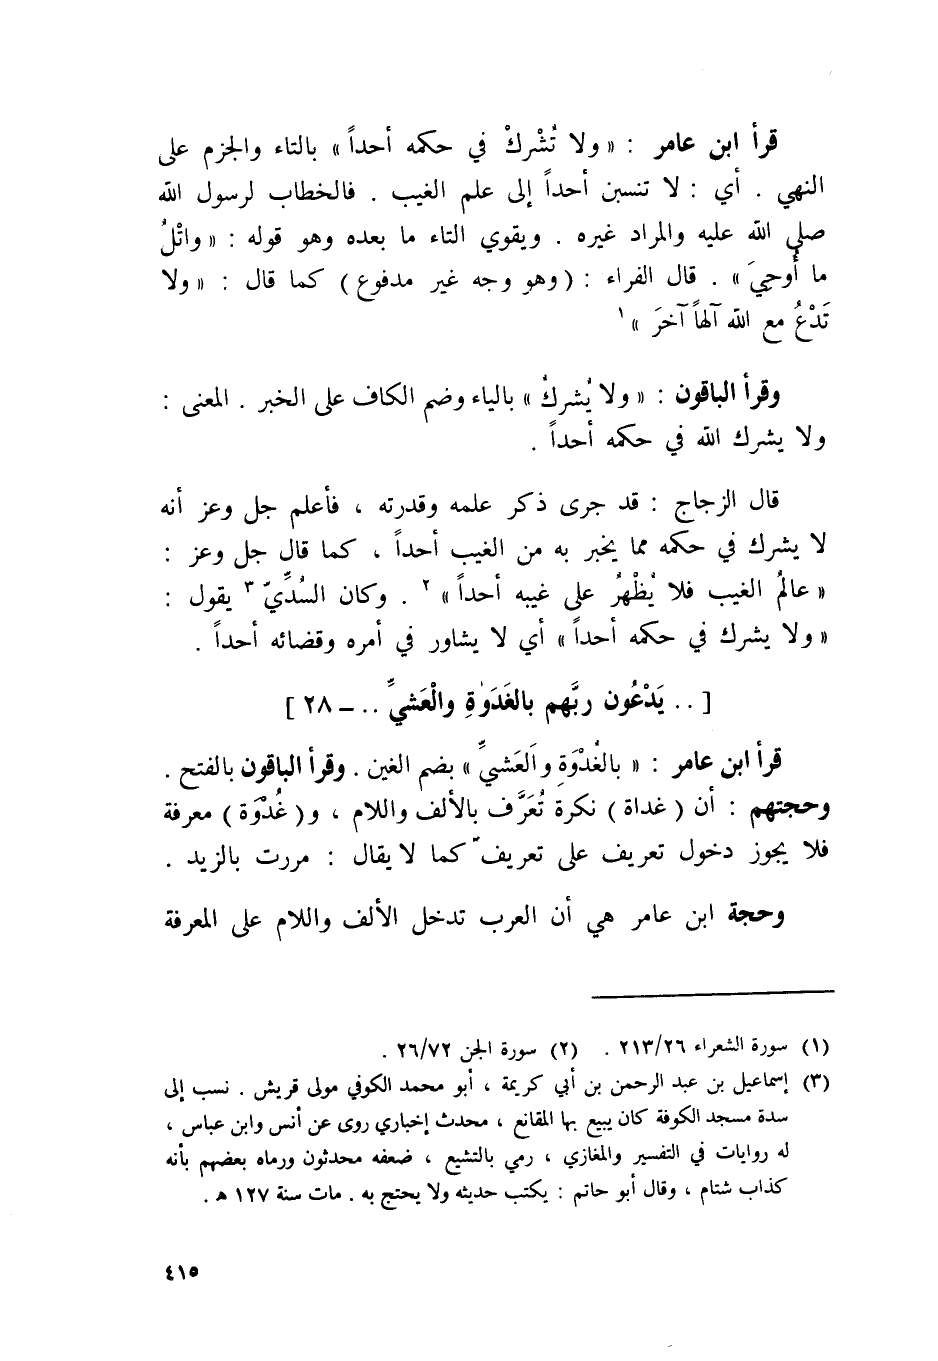 قرأ ابن عامر : « ولا تُشْركْ في حكمه أحداً » بالتاء والجزم على
النهي . أي : لا تنسبن أحداً إلى علم الغيب . فالخطاب لرسول الله
صلى الله عليه والمراد غيره . ويقوي التاء ما بعده وهو قوله : « واتْلُ
ما أُوحِيَ » . قال الفراء : ( وهو وجه غير مدفوع ) كما قال : « ولا
تَدْعُ مع الله آلهاً آخرَ » ١
وقرأ الباقون : « ولا يُشركُ » بالياء وضم الكاف على الخبر . المعنى :
ولا يشرك الله في حكمه أحداً .
قال الزجاج : قد جرى ذكر علمه وقدرته ، فأعلم جل وعز أنه
لا يشرك في حكمه مما يخبر به من الغيب أحداً ، كما قال جل وعز :
« عالمُ الغيب فلا يُظْهرُ على غيبه أحداً » ٢ . وكان السُدِّيّ ٣ يقول :
« ولا يشرك في حكمه أحداً » أي لا يشاور في أمره وقضائه أحداً .
[ .. يَدْعُون ربَّهم بالغَدَوٰةِ والْعَشيِّ .. – ٢٨ ]
قرأ ابن عامر : « بالغُدْوَةِ والعَشيِّ » بضم الغين . وقرأ الباقون بالفتح .
وحجتهم : أن ( غداة ) نكرة تُعَرَّف بالألف واللام ، و( غُدْوَة ) معرفة
فلا يجوز دخول تعريف على تعريف كما لا يقال : مررت بالزيد .
وحجة ابن عامر هي أن العرب تدخل الألف واللام على المعرفة
(١) سورة الشعراء ٢١٣/٢٦ . (٢) سورة الجن ٢٦/٧٢ .
(٣) إسماعيل بن عبد الرحمن بن أبي كريمة ، أبو محمد الكوفي مولى قريش . نسب إلى
سدة مسجد الكوفة كان يبيع بها المقانع ، محدث إخباري روى عن أنس وابن عباس ،
له روايات في التفسير والمغازي ، رمي بالتشيع ، ضعفه محدثون ورماه بعضهم بأنه
كذاب شتام ، وقال أبو حاتم : يكتب حديثه ولا يحتج به . مات سنة ١٢٧ ه .
٤١٥